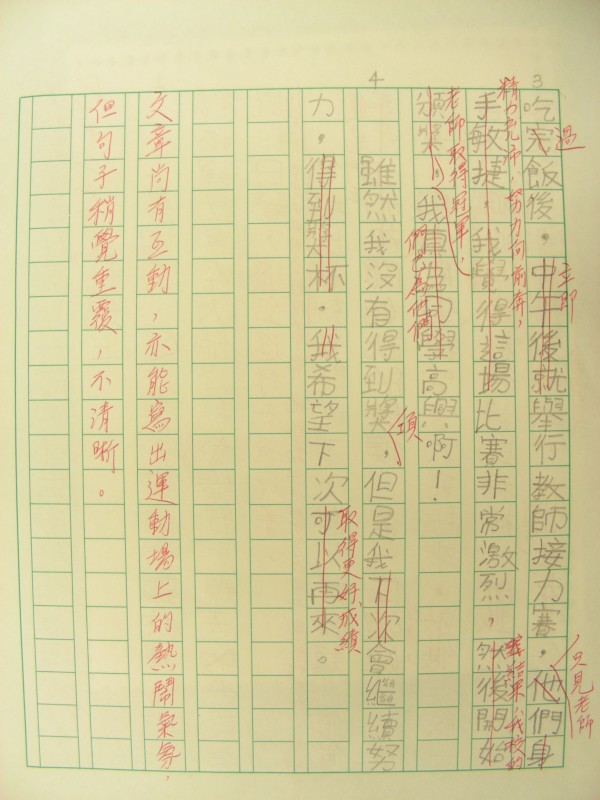 3
吃完飯後，中午後就舉行教師接力賽，他們身
過
立即
只見老師
手敏捷，我覺得這場比賽非常激烈，然後開始
精力充沛，努力向前奔，
結果，我校的
頒獎。我真為同學高興啊！
老師取得冠軍，
們也為他們
4
雖然我沒有得到獎，但是我下次會繼續努
項
力，得到獎杯。我希望下次可以再來。
取得更好成績
文章尚有互動，亦能寫出運動場上的熱鬧氣氛，
但句子稍覺重覆，不清晰。